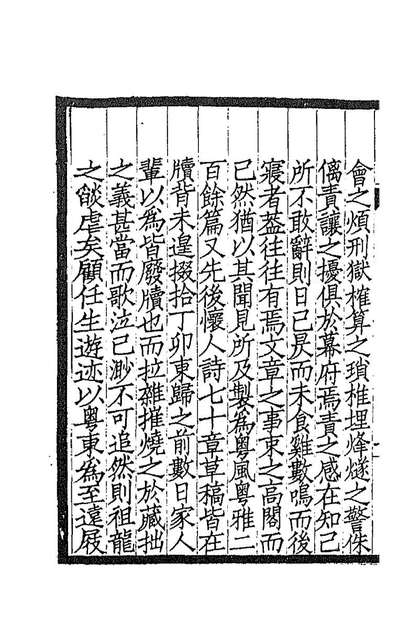 會之煩刑獄榷算之瑣椎埋烽燧之警侏
僑責讓之擾俱於幕府焉責之感在知己
所不敢辭則日已昃而未食雞數鳴而後
寢者葢往往有焉文章之事束之高閣而
已然猶以其聞見所及製為粵風粵雅二
百餘篇又先後懷人詩七十章草稿皆在
牘背未遑掇拾丁卯東歸之前數日家人
輩以為皆廢牘也而拉雜摧燒之於藏拙
之義甚當而歌泣已渺不可追然則祖龍
之燄虐矣顧任生遊迹以粵東為至遠屐